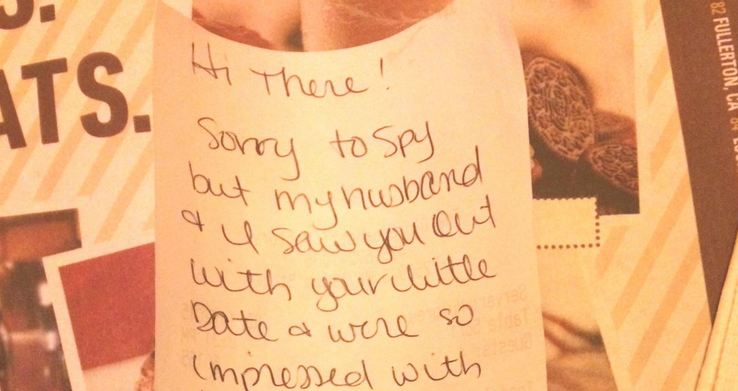 S.
ATS.
Hi There!
Sorry to spy
but my husband
& I saw you out
with your little
Date & were so
impressed with
82 FULLERTON, CA 84